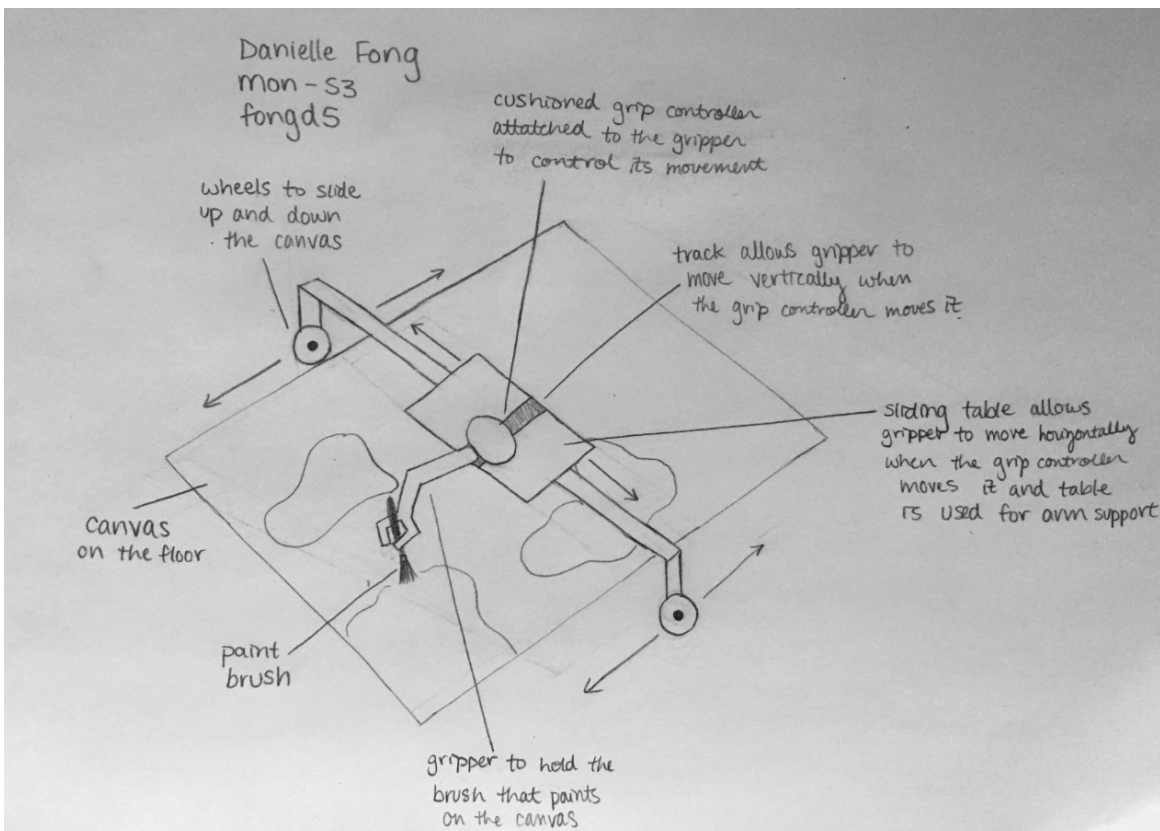 Danielle Fong
mon - S3
fongd5
cushioned grip controller
attatched to the gripper
to control its movement
wheels to slide
up and down
the canvas
track allows gripper to
move vertically when
the grip controller moves it.
sliding table allows
gripper to move horizontally
when the grip controller
moves it and table
is used for arm support
canvas
on the floor
paint
brush
gripper to hold the
brush that paints
on the canvas